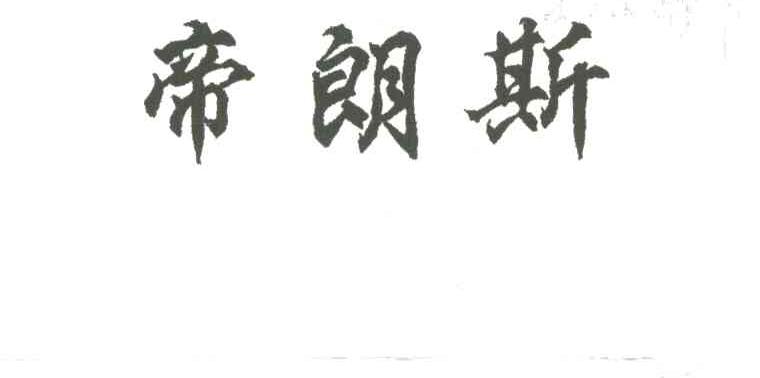 帝朗斯